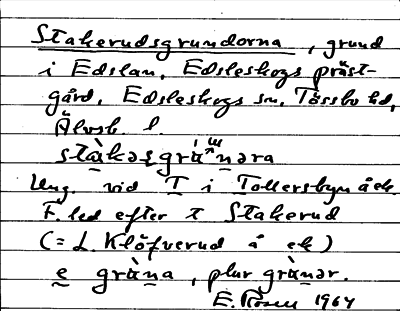 Stakerudsgrundorna, grund
i Edslan, Edsleskogs präst-
gård, Edsleskogs sn, Tössbo hd,
Älvsb. l.
Ung. vid T i Tollersbyn å ek
F. led efter t Stakerud
(= L. Klöfverud å ek)
e gràna, plur grànər.
1964